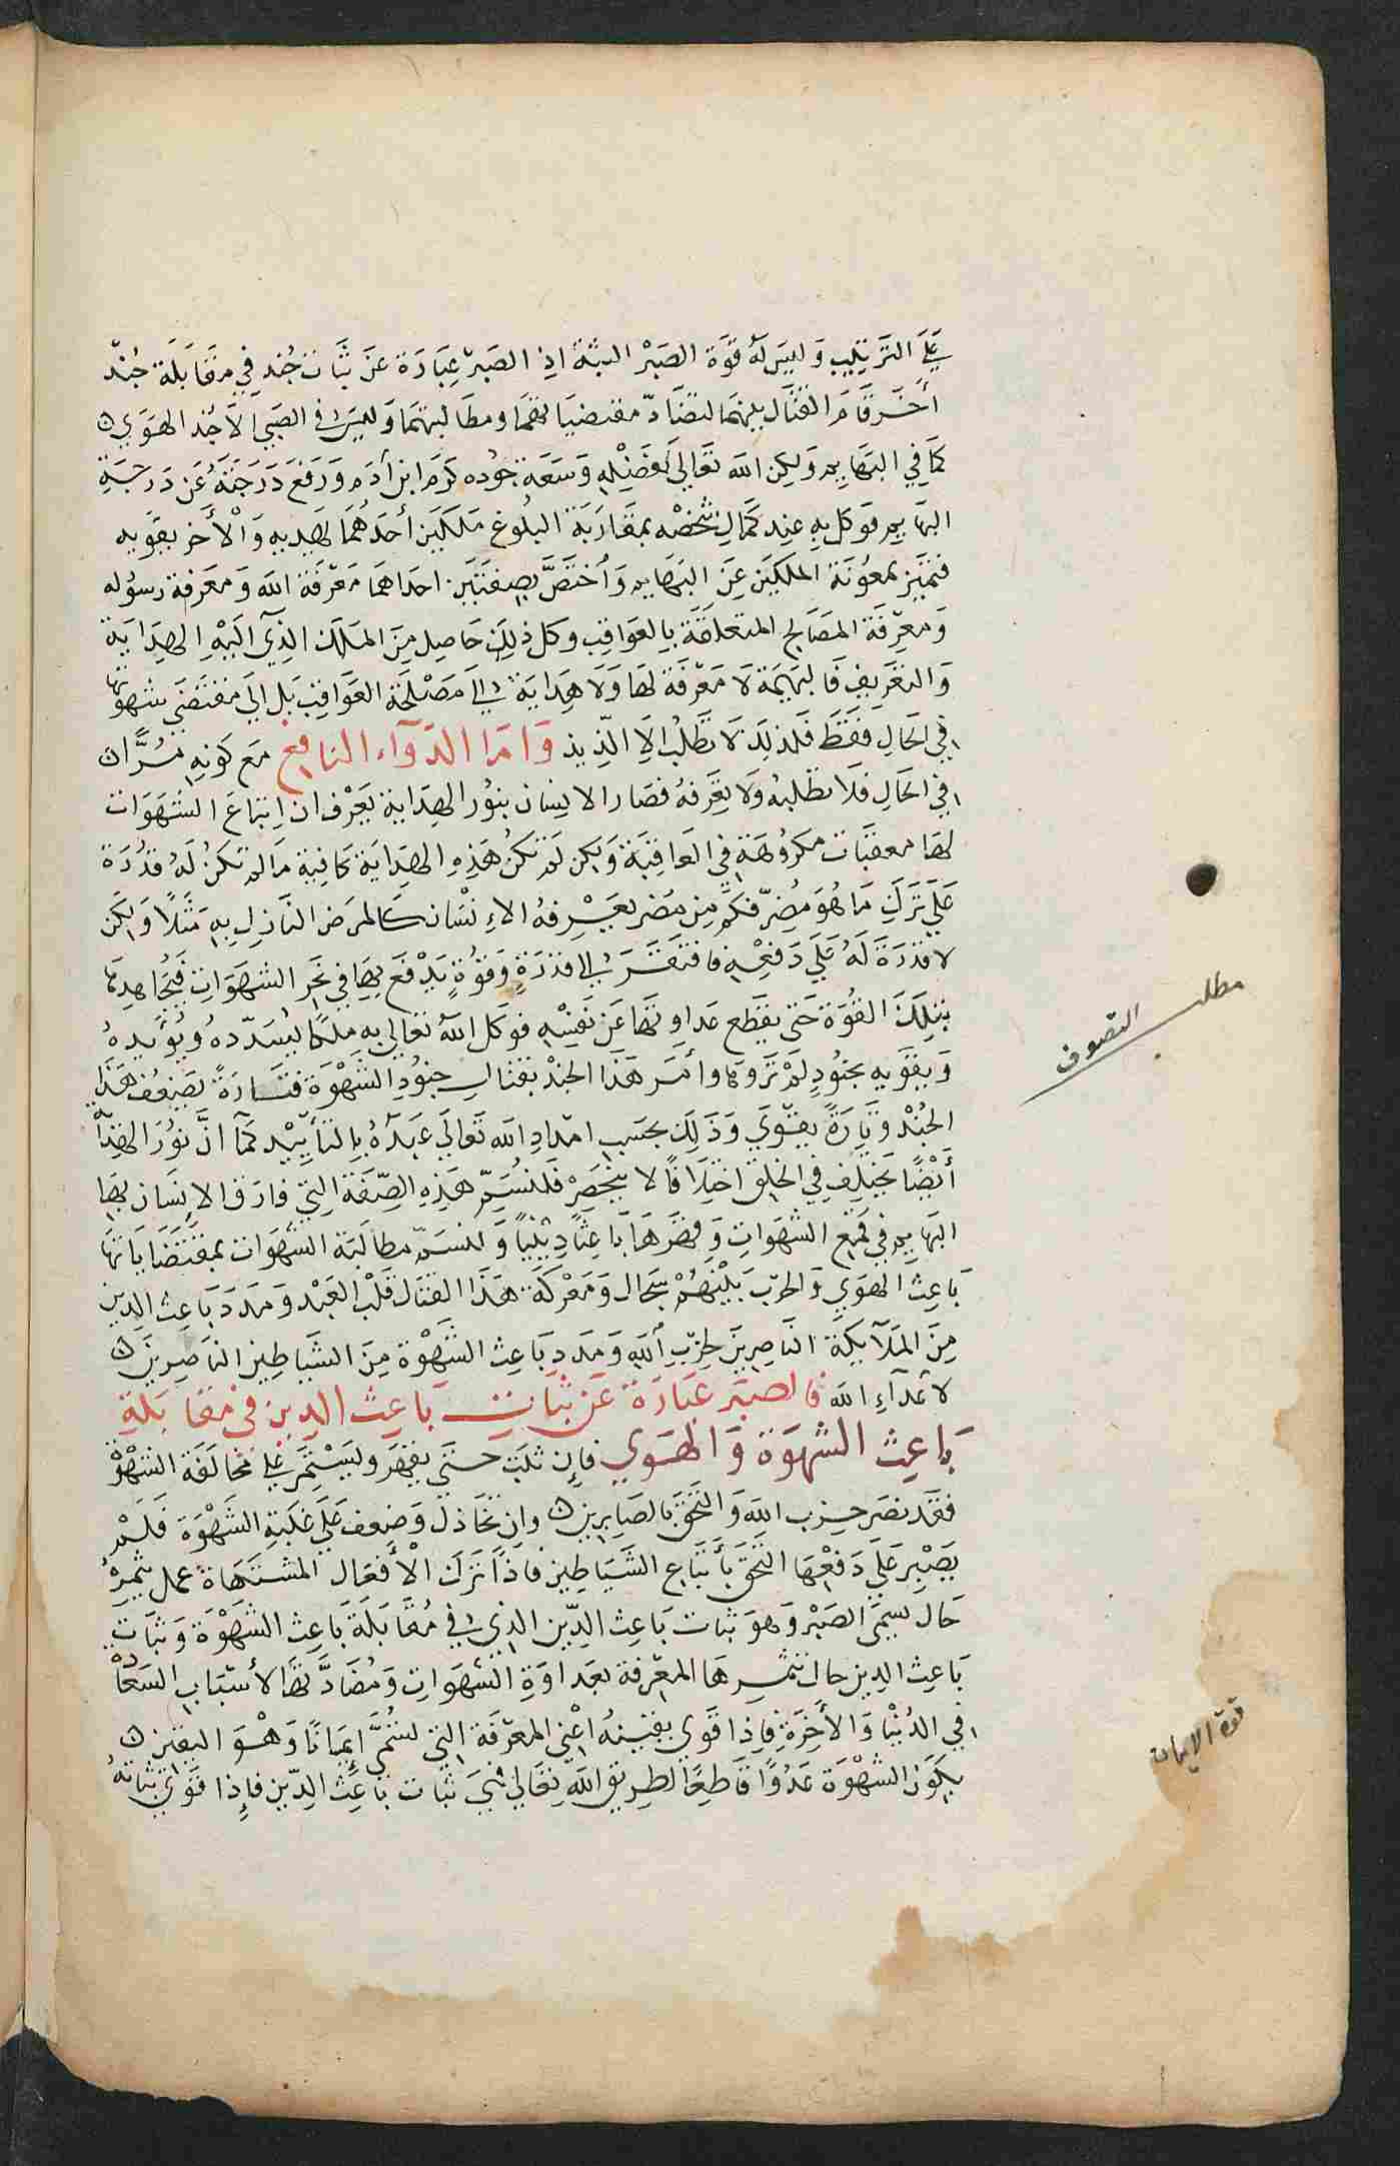 علي الترتيب وليس له قوة الصبر البتة اذ الصبر عبارة عن ثبات جند في مقابلة جند
أخر قام القتال بينهما لتضاد مقتضياتهما ومطالبتهما وليس في الصبي الا جند الهوي
كما في البهايم ولكن الله تعالي بفضله وسعة جوده كرم ابن آدم ورفع درجته عن درجة
البهايم فوكل به عند كمال شخصه بمقاربة البلوغ ملكين أحدهما يهديه والأخر يقويه
فتميز بمعونة الملكين عن البهايم وأختص بصفتين احداهما معرفة الله ومعرفة رسوله
ومعرفة المصالح المتعلقة بالعواقب وكل ذلك حاصل من الملك الذي اليه الهداية
والتعريف فالبهيمة لا معرفة لها ولا هداية الي مصلحة العواقب بل الي مقتضي شهوتها
في الحال فقط فلذلك لا تطلب الا اللذيذ واما الدوآء النافع مع كونه مُرًّا
في الحال فلا تطلبه ولا تعرفه فصار الانسان بنور الهداية يعرف ان اتباع الشهوات
لها معقبات مكروهة في العاقبة ولكن لم تكن هذه الهداية كافية ما لم تكن له قدرة
علي ترك ما هو مضر فكم من مضر يعرفه الانسان كالمرض النازل به مثلاً ولكن
لا قدرة له علي دفعه فافتقر الي قدرة وقوة يدفع بها في نحر الشهوات فيجاهدها
بتلك القوة حتي يقطع عداوتها عن نفسه فوكل الله تعالي به ملكا يسدده ويؤيده
ويقويه بجنود لم تروها وأمر هذا الجند بقتال جنود الشهوة فتارة يضعف هذا
الجند وتارة يقوي وذلك بحسب امداد الله تعالي عبده بالتأييد كما ان نور الهداية
أيضًا يختلف في الخلق اختلافا لا ينحصر فلنسم هذه الصفة التي فارق الانسان بها
البهايم في قمع الشهوات وقهرها باعثا دينيا ولنسم مطالبة الشهوات بمقتضاياتها
باعث الهوي والحرب بينهم سجال ومعركة هذا القتال قلب العبد ومدد باعث الدين
من الملآيكة الناصرين لحزب الله ومدد باعث الشهوة من الشياطين الناصرين
لاعدآء الله فالصبر عبارة عن ثبات باعث الدين في مقابلة
باعث الشهوة والهوي فإن ثبت حتي يقهر ويستمر علي مخالفة الشهوة
فقد نصر حزب الله والتحق بالصابرين وان تخاذل وضعف علي غلبة الشهوة فلم
يصبر علي دفعها التحق بأتباع الشياطين فاذا ترك الأفعال المشتهاة عمل يثمره
حال يسمي الصبر وهو ثبات باعث الدين الذي في مقابلة باعث الشهوة وثبات
باعث الدين حال تثمرها المعرفة بعداوة الشهوات ومضادتها لأسباب السعادة
في الدنيا والأخرة فاذا قوي يقينه اعني المعرفة التي تسمي إيمانا وهو اليقين
بكون الشهوة عدوًا قاطعًا لطريق الله تعالي قوي ثبات باعث الدين فإذا قوي ثباته
مطلب التصوف
قوة الايمان